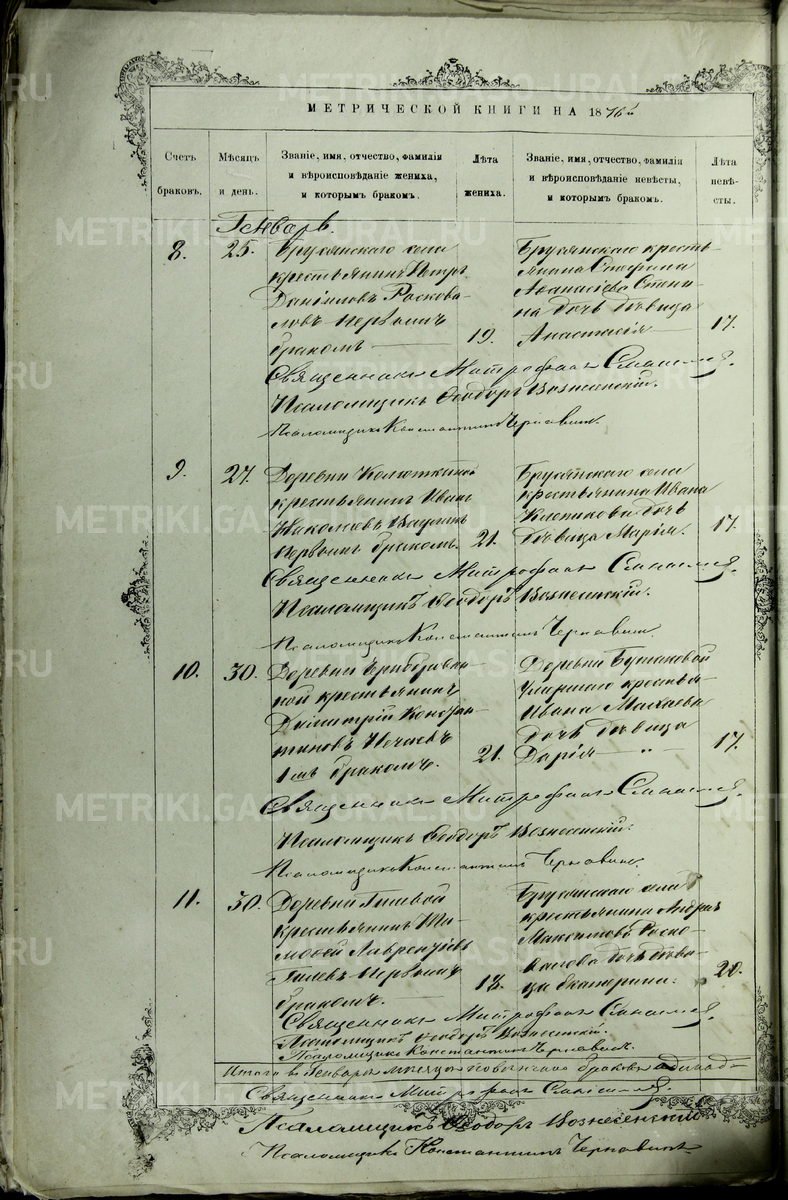 МЕТРИЧЕСКОЙ КНИГИ НА 1876й
Счетъ браковъ.
Мѣсяцъ и день.
Званіе, имя, отчество, фамилія
и вѣроисповѣданіе жениха,
и которымъ бракомъ.
Лѣта жениха.
Званіе, имя, отчество, фамилія
и вѣроисповѣданіе невѣсты,
и которымъ бракомъ.
Лѣта невѣсты.
Генварь.
8.
25.
Брусянскаго села
крестьянинъ Петръ
Даніиловъ Раскова-
ловъ первымъ
бракомъ
19.
Брусянскаго кресть-
янина Стефана
Аѳанасіева
дочь дѣвица
Анастасія
17.
Священникъ Митрофанъ
Псаломщикъ Ѳеодоръ Вознесенскій.
Псаломщикъ Константинъ Чернавинъ.
9.
27.
Деревни Колюткиной
крестьянинъ Иванъ
первымъ бракомъ.
21.
Брусянскаго села
крестьянина Ивана
дочь
дѣвица Марія.
17.
Священникъ Митрофанъ
Псаломщикъ Ѳеодоръ Вознесенскій.
Псаломщикъ Константинъ Чернавинъ.
10.
30.
Деревни
ной крестьянинъ
Димитрій Констан-
тиновъ
1мъ бракомъ.
21.
Деревни
умершаго крестья-
Ивана
дочь дѣвица
Дарія — „ —
17.
Священникъ Митрофанъ
Псаломщикъ Ѳеодоръ Вознесенскій.
Псаломщикъ Константинъ Чернавинъ.
11.
30.
Деревни Гилевой
крестьянинъ Ти-
моѳей Лаврентіевъ
Гилевъ первымъ
бракомъ.
18.
Брусянскаго села
крестьянина Андрея
Раско-
валова дочь дѣви-
ца Екатерина.
20.
Священникъ Митрофанъ
Псаломщикъ Ѳеодоръ Вознесенскій.
Псаломщикъ Константинъ Чернавинъ.
Итого въ Генварѣ мѣсяцѣ браковъ
Священникъ Митрофанъ
Псаломщикъ Ѳеодоръ Вознесенскій
Псаломщикъ Константинъ Чернавинъ